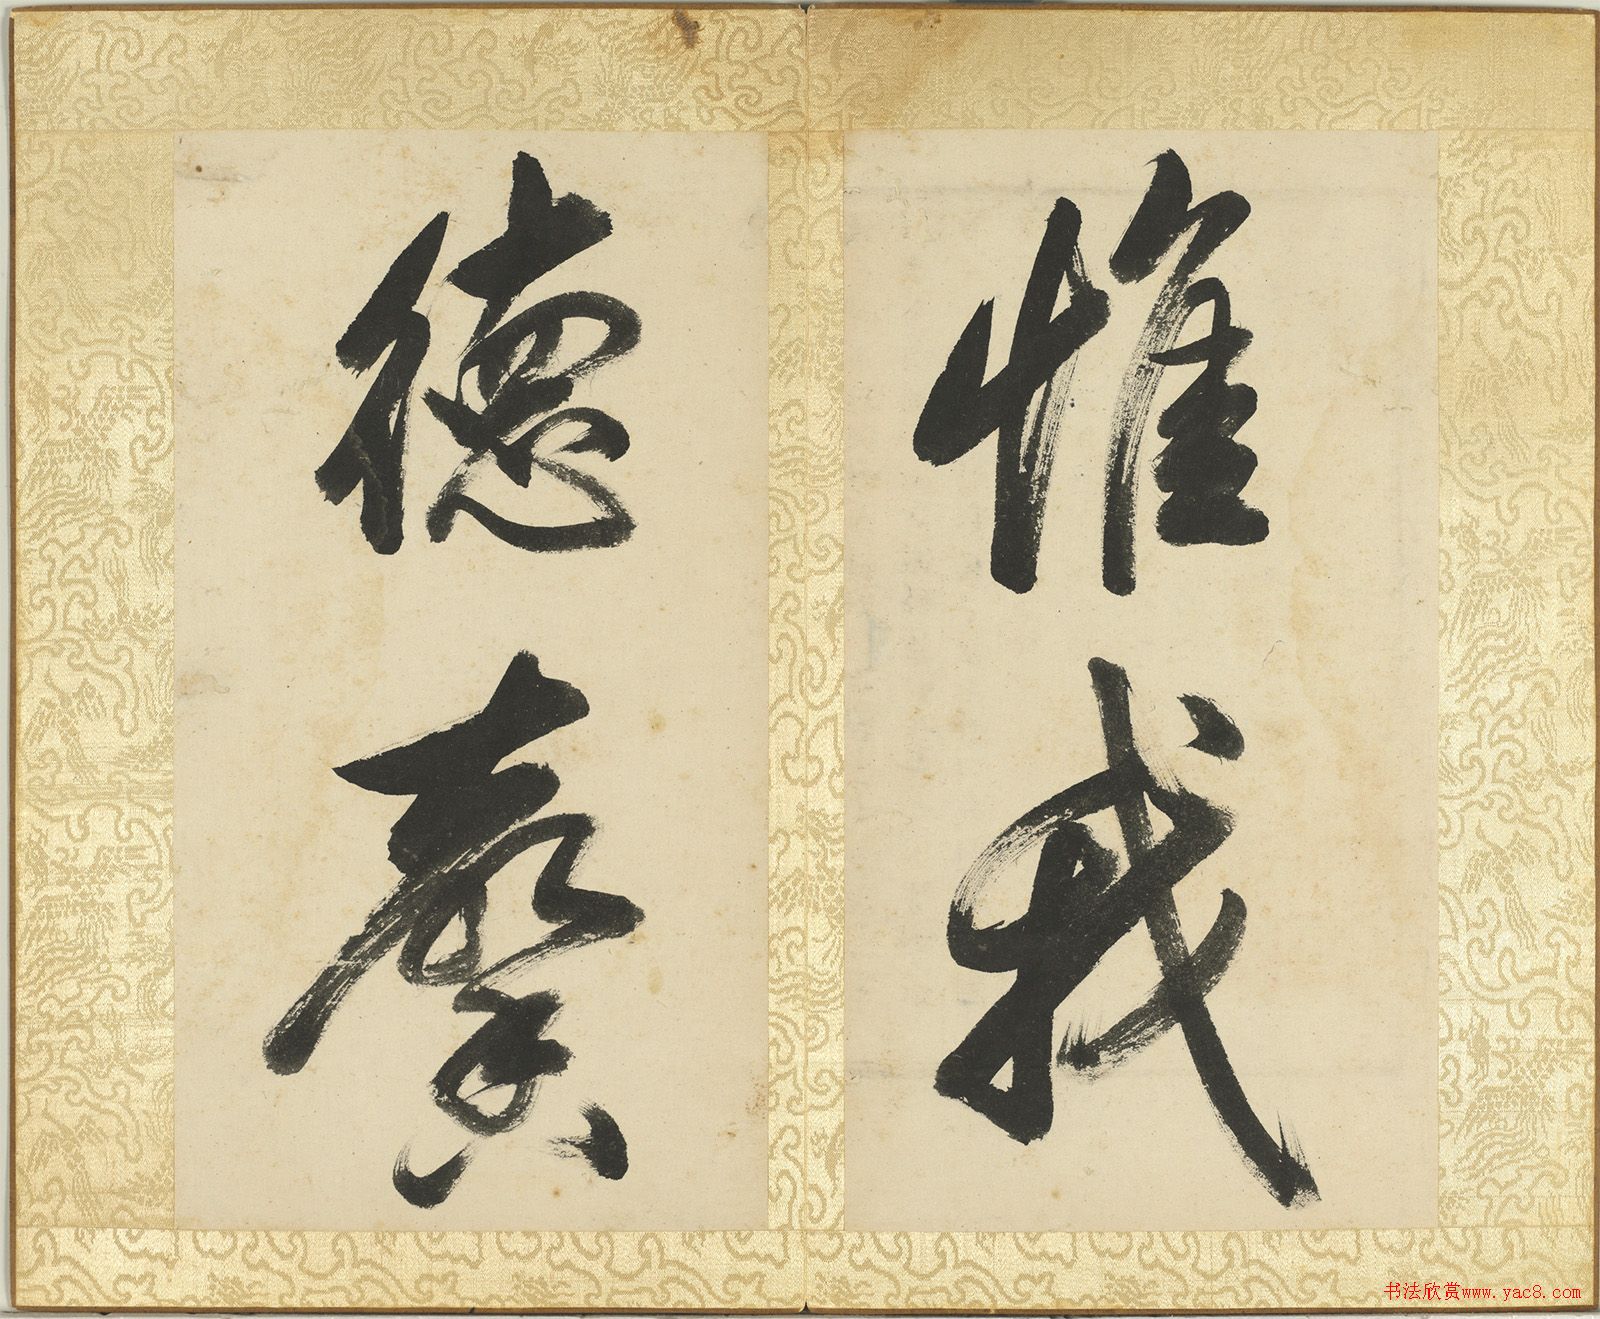 惟我
德馨
书法欣赏www.yac8.com